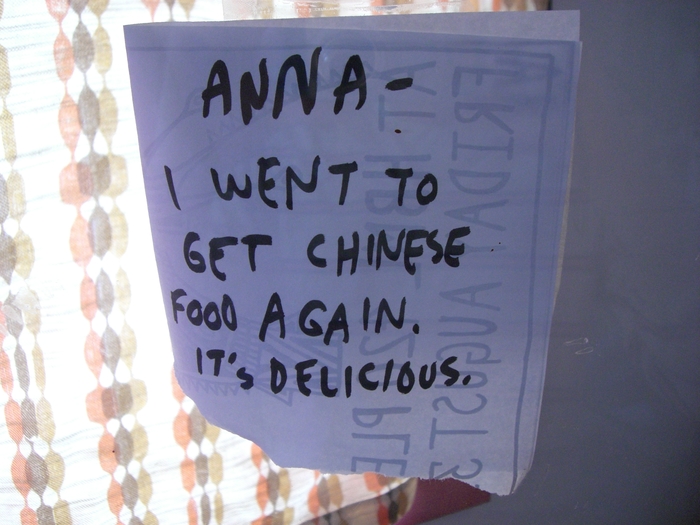 ANNA-
I WENT TO
GET CHINESE
FOOD AGAIN.
IT'S DELICIOUS.
FRIDAY AUGUST